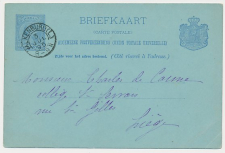 BRIEFKAART
(CARTE POSTALE)
ALGEMEENE POSTVEREENIGING (UNION POSTALE UNIVERSELLE)
Zijde voor het adres bestemd. (Côté réservé à l'adresse.)
Monsieur Charles de
collège St Servais
rue St Gilles
Liége